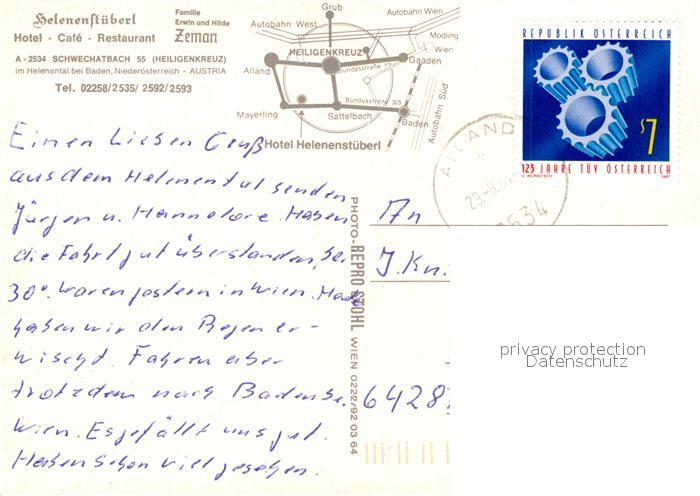 Helenenstüberl
Hotel · Café · Restaurant
Familie
Erwin und Hilde
Zeman
A - 2534 SCHWECHATBACH 55 (HEILIGENKREUZ)
im Helenental bei Baden, Niederösterreich - AUSTRIA
Tel. 02258/2535/ 2592/2593
Grub
Autobahn West
Autobahn Wien
Mödling
Wien
HEILIGENKREUZ
Alland
Gaaden
Bundesstraße 11
Mayerling
Sattelbach
Bundesstraße 305
Baden
Autobahn Süd
Hotel Helenenstüberl
REPUBLIK ÖSTERREICH
S7
125 JAHRE TÜV ÖSTERREICH
1997
ALLAND
2534
Einen Lieben Gruß
aus dem Helenental senden
Jürgen u. Hannelore. Haben
die Fahrt gut überstanden, bei
30° waren gestern in Wien.
haben wir den Regen er-
wischt. Fahren aber
trotzdem nach Baden bei
Wien. Es gefällt uns gut.
Haben schon viel gesehen.
PHOTO-REPRO STOHL WIEN 0222/92 03 64
An
J. Kn
6428
privacy protection
Datenschutz